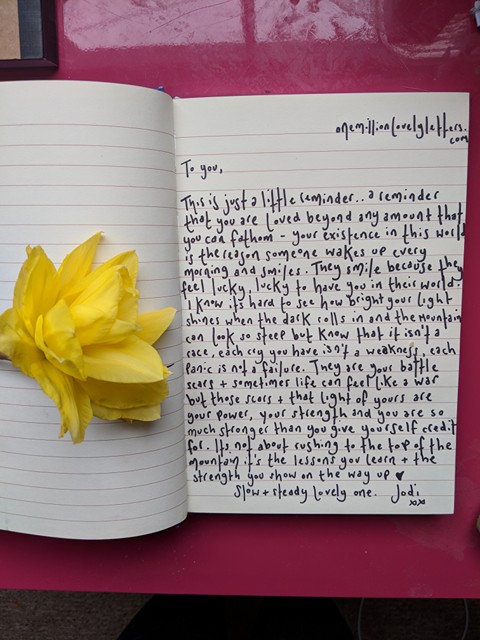 onemillionlovelyletters.
com
To you,
This is just a little reminder.. a reminder
that you are loved beyond any amount that
you can fathom - your existence in this world
is the reason someone wakes up every
morning and smiles. They smile because they
feel lucky, lucky to have you in their world.
I know it's hard to see how bright your light
shines when the dark rolls in and the mountain
can look so steep but know that it isn't a
race, each cry you have isn't a weakness, each
panic is not a failure. They are your battle
scars + sometimes life can feel like a war
but those scars + that light of yours are
your power, your strength and you are so
much stronger than you give yourself credit
for. It's not about rushing to the top of the
mountain it's the lessons you learn + the
strength you show on the way up ♥
Slow + steady lovely one. Jodi
xoxo